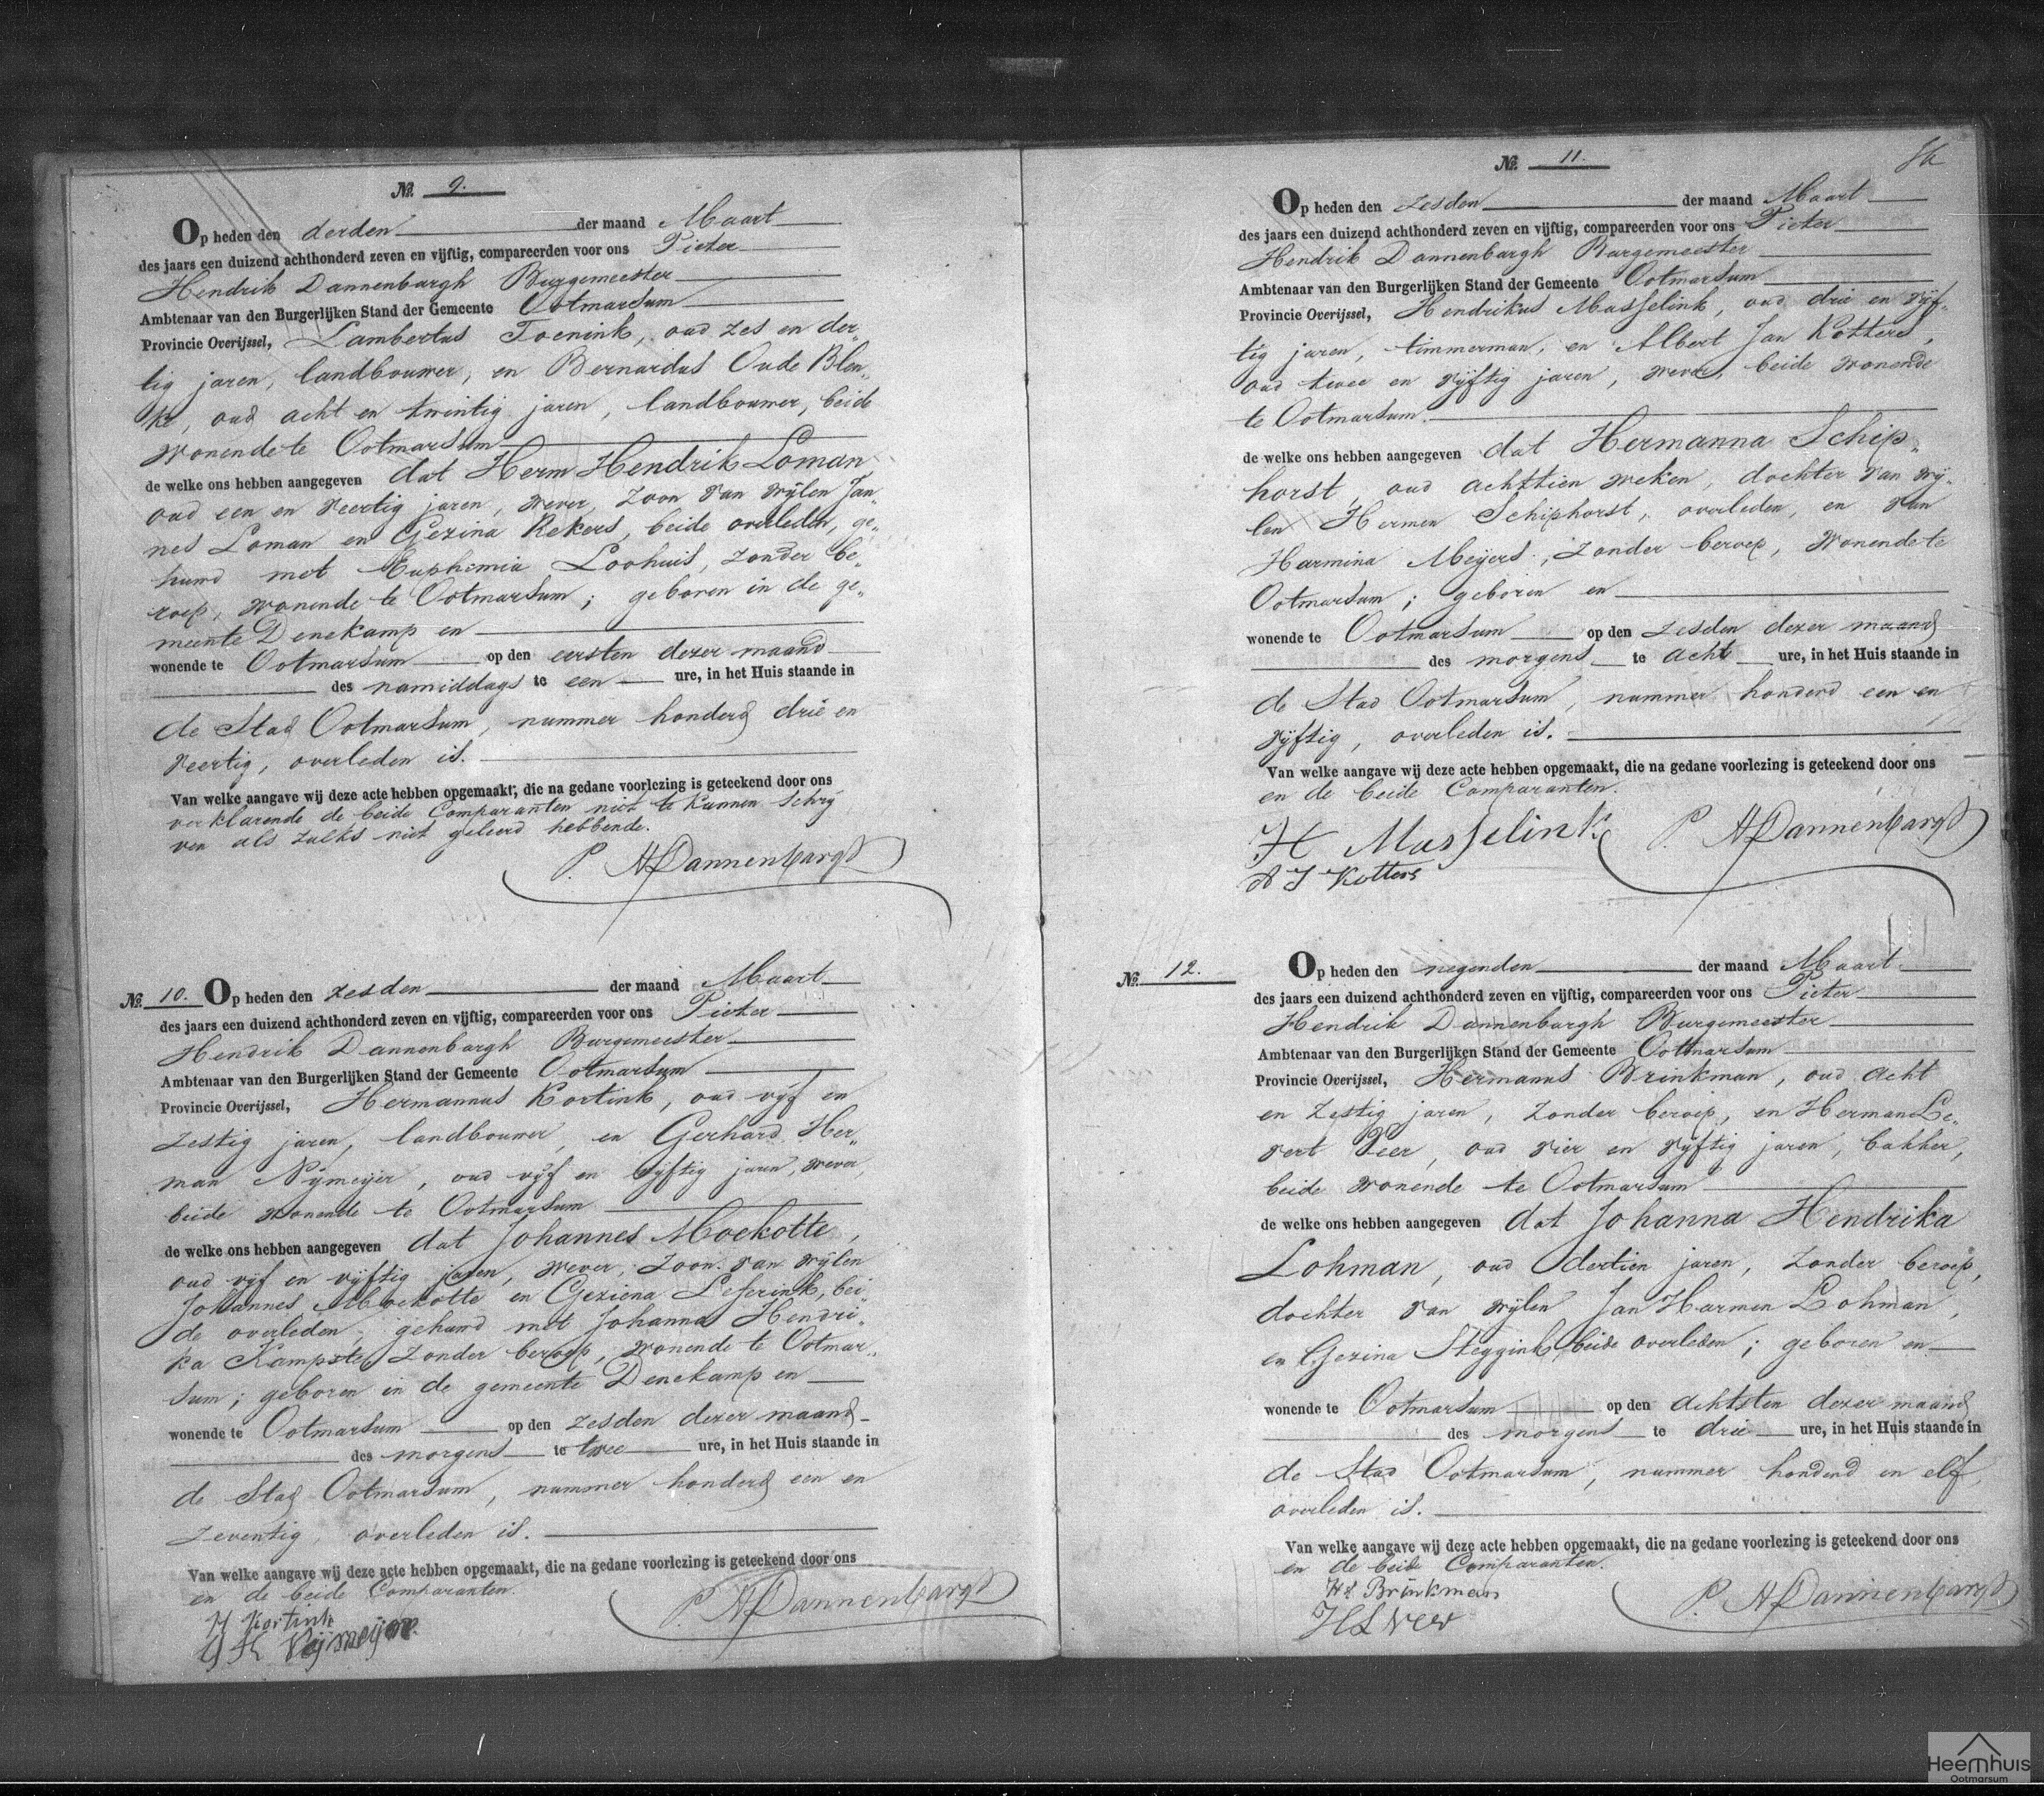 No. 9.
Op heden den derden der maand Maart
des jaars een duizend achthonderd zeven en vijftig, compareerden voor ons Pieter
Hendrik Dannenbargh Burgemeester
Ambtenaar van den Burgerlijken Stand der Gemeente Ootmarsum
Provincie Overijssel, Lambertus Toenink, oud zes en der„
tig jaren, landbouwer, en Bernardus Oude Blen„
ke, oud acht en twintig jaren, landbouwer, beide
wonende te Ootmarsum
de welke ons hebben aangegeven dat Herm Hendrik Loman,
oud een en veertig jaren, wever, zoon van wijlen Jan„
nes Loman en Gezina Rekers, beide overleden, ge„
huwd met Euphemia Loohuis, zonder be„
roep, wonende te Ootmarsum; geboren in de ge„
meente Denekamp en
wonende te Ootmarsum op den eersten dezer maand
des namiddags te een ure, in het Huis staande in
de Stad Ootmarsum, nummer honderd drie en
veertig, overleden is.
Van welke aangave wij deze acte hebben opgemaakt, die na gedane voorlezing is geteekend door ons
verklarende de beide Comparanten niet te kunnen schrij
ven als zulks niet geleerd hebbende.
P. H Dannenbargh
No. 10. Op heden den zesden der maand Maart
des jaars een duizend achthonderd zeven en vijftig, compareerden voor ons Pieter
Hendrik Dannenbargh Burgemeester
Ambtenaar van den Burgerlijken Stand der Gemeente Ootmarsum
Provincie Overijssel, Hermannus Kortink, oud vijf en
zestig jaren, landbouwer, en Gerhard Her„
man Nijmeijer, oud vijf en vijftig jaren, wever,
beide wonende te Ootmarsum
de welke ons hebben aangegeven dat Johannes Moekotte,
oud vijf en vijftig jaren, wever, zoon van wijlen
Johannes Moekotte en Geziena Leferink, bei„
de overleden, gehuwd met Johanna Hendri„
ka Kampste, zonder beroep, wonende te Ootmar„
sum; geboren in de gemeente Denekamp en
wonende te Ootmarsum op den zesden dezer maand
des morgens te twee ure, in het Huis staande in
de Stad Ootmarsum, nummer honderd een en
zeventig, overleden is.
Van welke aangave wij deze acte hebben opgemaakt, die na gedane voorlezing is geteekend door ons
en de beide Comparanten.
H Kortink
G H Nijmeijer
P. H Dannenbargh
No. 11.
Op heden den zesden der maand Maart
des jaars een duizend achthonderd zeven en vijftig, compareerden voor ons Pieter
Hendrik Dannenbargh Burgemeester
Ambtenaar van den Burgerlijken Stand der Gemeente Ootmarsum
Provincie Overijssel, Hendrikus Masselink, oud drie en vijf„
tig jaren, timmerman, en Albert Jan Kotters,
oud twee en vijftig jaren, wever, beide wonende
te Ootmarsum.
de welke ons hebben aangegeven dat Hermanna Schip„
horst, oud achttien weken, dochter van wij„
len Hermen Schiphorst, overleden, en van
Harmina Meijers, zonder beroep, wonende te
Ootmarsum; geboren en
wonende te Ootmarsum op den zesden dezer maand
des morgens te acht ure, in het Huis staande in
de Stad Ootmarsum, nummer honderd een en
vijftig, overleden is.
Van welke aangave wij deze acte hebben opgemaakt, die na gedane voorlezing is geteekend door ons
en de beide Comparanten.
H Masselink P. H Dannenbargh
A J Kotters
No. 12. Op heden den negenden der maand Maart
des jaars een duizend achthonderd zeven en vijftig, compareerden voor ons Pieter
Hendrik Dannenbargh Burgemeester
Ambtenaar van den Burgerlijken Stand der Gemeente Ootmarsum
Provincie Overijssel, Hermanus Brinkman, oud acht
en zestig jaren, zonder beroep, en Herman Le„
vert Veer, oud vier en vijftig jaren, bakker,
beide wonende te Ootmarsum
de welke ons hebben aangegeven dat Johanna Hendrika
Lohman, oud dertien jaren, zonder beroep,
dochter van wijlen Jan Harmen Lohman,
en Gezina Steggink, beide overleden; geboren en
wonende te Ootmarsum op den achtsten dezer maand
des morgens te drie ure, in het Huis staande in
de Stad Ootmarsum, nummer honderd en elf,
overleden is.
Van welke aangave wij deze acte hebben opgemaakt, die na gedane voorlezing is geteekend door ons
en de beide Comparanten.
Hs Brinkman
H L Veer
P. H Dannenbargh
Heemhuis
Ootmarsum